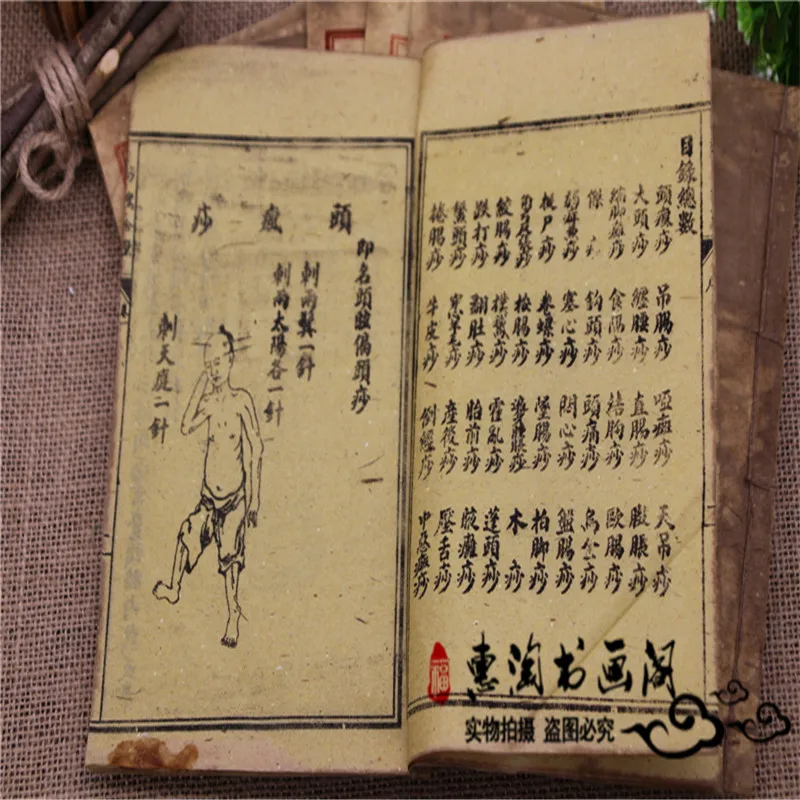 目錄總數
頭瘋痧 吊腸痧 啞痧 天吊痧
大頭痧 纏腰痧 直腸痧 膨脹痧
縮脚痧 食隔痧 結胸痧 歐腸痧
傑痧 鈎頭痧 頭痛痧 烏公痧
痧 塞心痧 悶心痧 盤腸痧
挺尸痧 卷螺痧 墜腸痧 拍脚痧
痧 拴腸痧 痧 木痧
絞腸痧 撲鵞痧 霍亂痧 蓬頭痧
跌打痧 翻肚痧 胎前痧 腋癰痧
蟹頭痧 痧 產後痧 壓舌痧
捲腸痧 牛皮痧 倒經痧 中惡痧
頭瘋痧
即名頭眩偏頭痧
刺兩鬢一針
刺兩太陽各一針
刺天庭一針
福
惠淘书画阁
实物拍摄 盗图必究